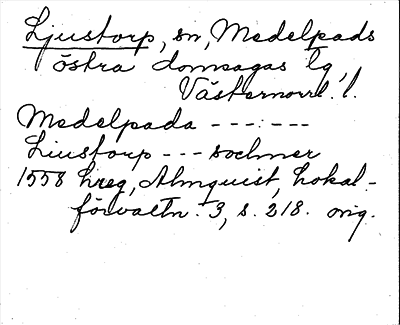 Ljustorp, sn, Medelpads
östra domsagas lg,
Västernorrl. l.
Medelpada - - - : - - -
Liustorup - - - sochner
1558 hreg, Almquist, Lokal-
förvaltn. 3, s. 218. orig.